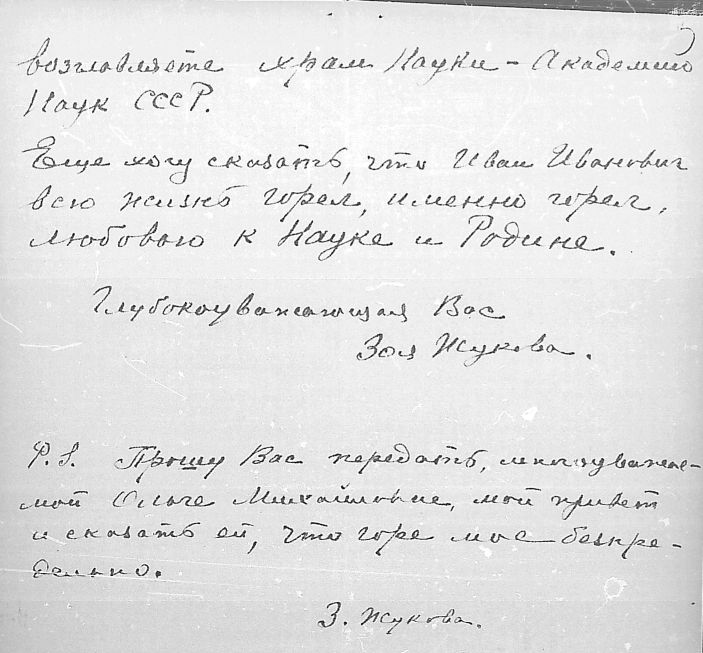 возглавляете храм Науки - Академию
Наук СССР.
Еще хочу сказать, что Иван Иванович
всю жизнь горел, именно горел,
любовью к Науке и Родине.
Глубокоуважающая Вас
Зоя Жукова.
P.S. Прошу Вас передать, многоуважае-
мой Ольге Михайловне, мой привет
и сказать ей, что горе мое безпре-
дельно.
З. Жукова.